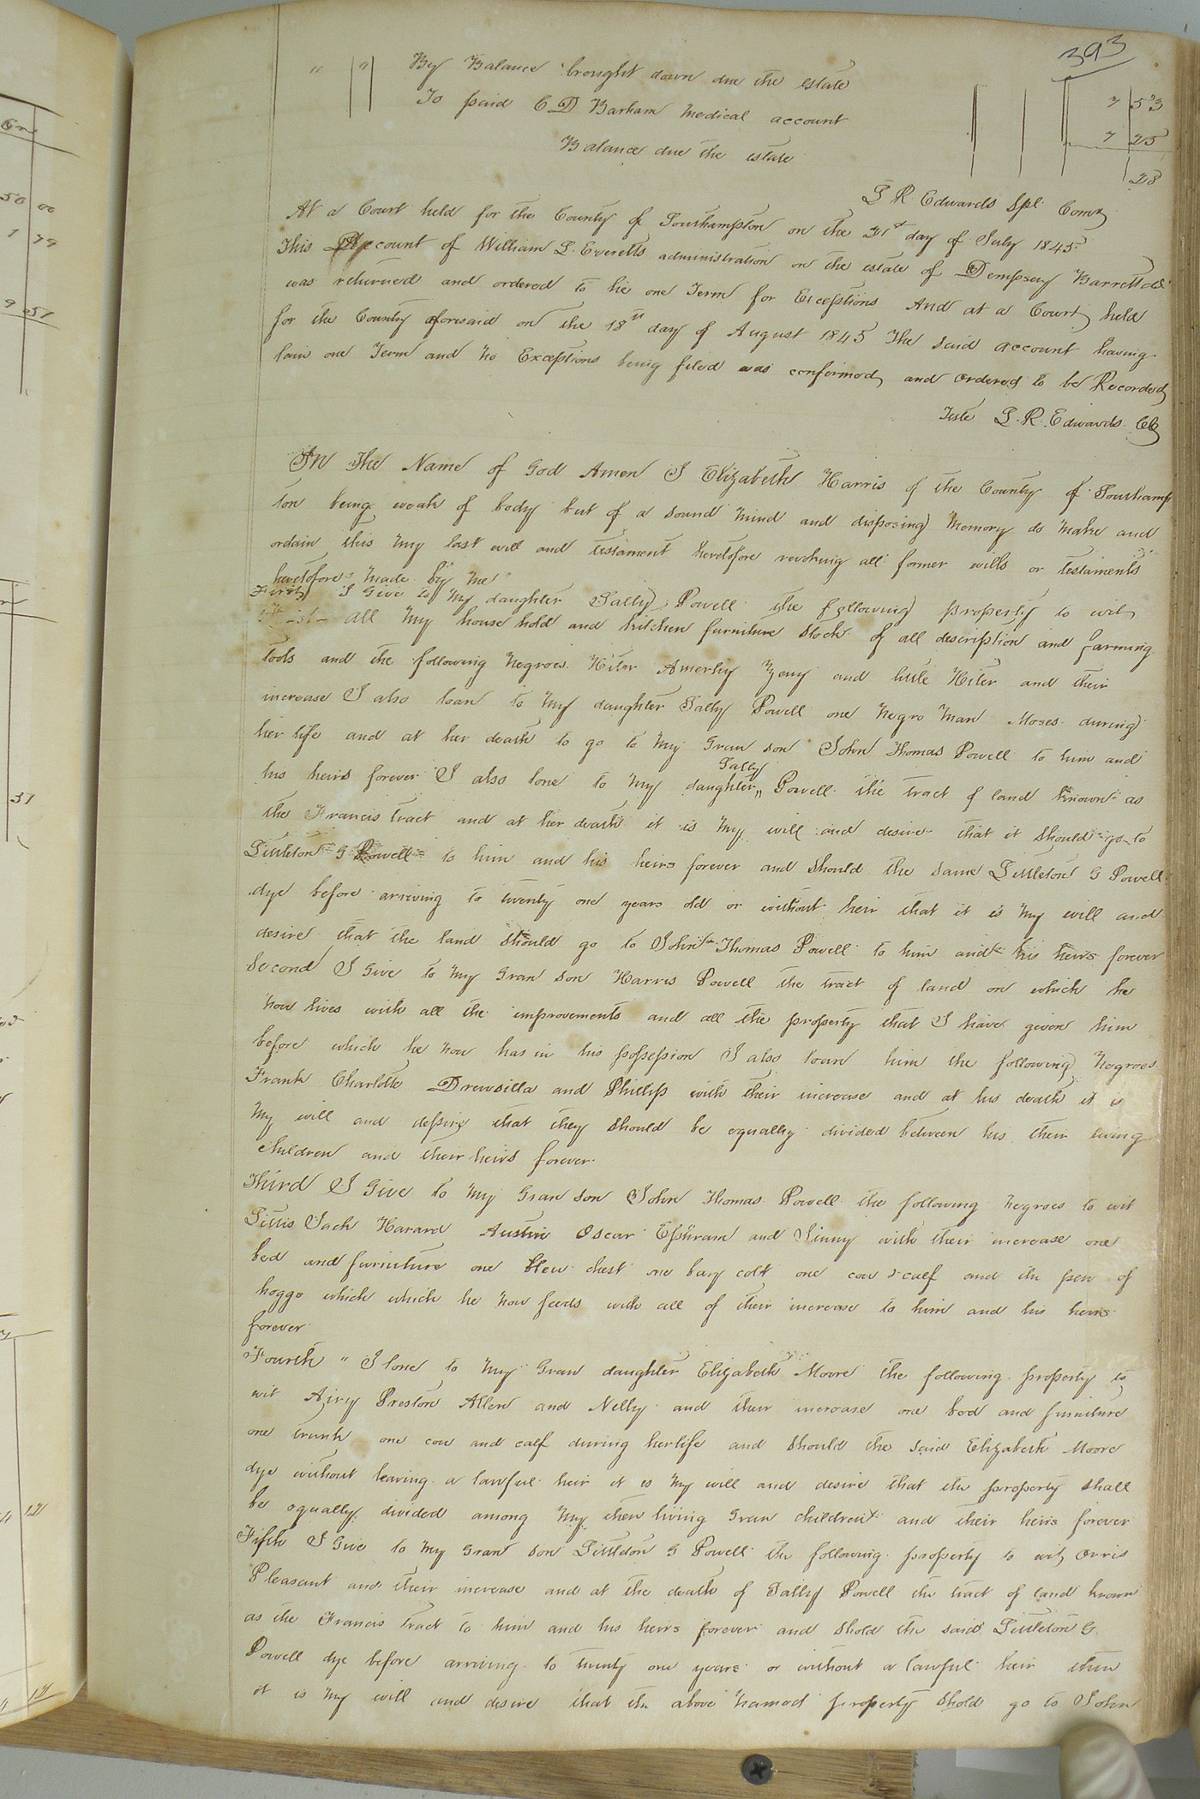 393
" " By Balance brought down due the estate 7 53
To paid C D Barham medical account 7 25
Balance due the estate 28
L R Edwards Spl Comr
At a Court held for the County of Southampton on the 21st day of July 1845
This Account of William L. Everetts administration on the estate of Dempsey Barrett decd
was returned and ordered to lie one Term for Exceptions And at a Court held
for the County aforesaid on the 18th day of August 1845 The said account having
lain one Term and no Exceptions being filed was confirmed and ordered to be Recorded
Teste L. R. Edwards Clk
In The Name of God Amen I Elizabeth Harris of the County of Southamp
ton being weak of body but of a sound mind and disposing memory do make and
ordain this my last will and testament heretofore revoking all former wills or testaments
heretofore made by me
First I Give to my daughter Sally Powell the following property to wit
all my house hold and kitchen furniture stock of all description and farming
tools and the following negroes Hiter Amerky Zeny and little Hiter and their
increase I also loan to my daughter Sally Powell one negro man Moses during
her life and at her death to go to my Gran son John Thomas Powell to him and
Sally
his heirs forever I also lone to my daughter,, Powell the tract of land known as
the Francis tract and at her death it is my will and desire that it should go to
Littleton G Powell to him and his heirs forever and should the same Littleton G Powell
dye before arriving to twenty one years old or without heir that it is my will and
desire that the land should go to John Thomas Powell to him and his heirs forever
Second I Give to my Gran son Harris Powell the tract of land on which he
now lives with all the improvements and all the property that I have given him
before which he now has in his possession I also loan him the following negroes
Frank Charlotte Drewsilla and Phillip with their increase and at his death it is
my will and desire that they should be equally divided between his their living
children and their heirs forever.
Third I Give to my Gran son John Thomas Powell the following negroes to wit
Littis Jack Harard Austin Oscar Ephram and Linny with their increase one
bed and furniture one blew chest one bay colt one cow & calf and the pen of
hoggs which which he now feeds with all of their increase to him and his heirs
forever
Fourth " I lone to my Gran daughter Elizabeth Moore the following property to
wit Airy Preston Allen and Nelly and their increase one bed and furniture
one trunk one cow and calf during her life and should the said Elizabeth Moore
dye without leaving a lawful heir it is my will and desire that the property shall
be equally divided among my then living Gran children and their heirs forever
Fifth I Give to my Gran son Littleton G Powell the following property to wit, Orris
Pleasant and their increase and at the death of Sally Powell the tract of land known
as the Francis tract to him and his heirs forever and shold the said Littleton G.
Powell dye before arriving to twenty one years or without a lawful heir then
it is my will and desire that the above named property shold go to John